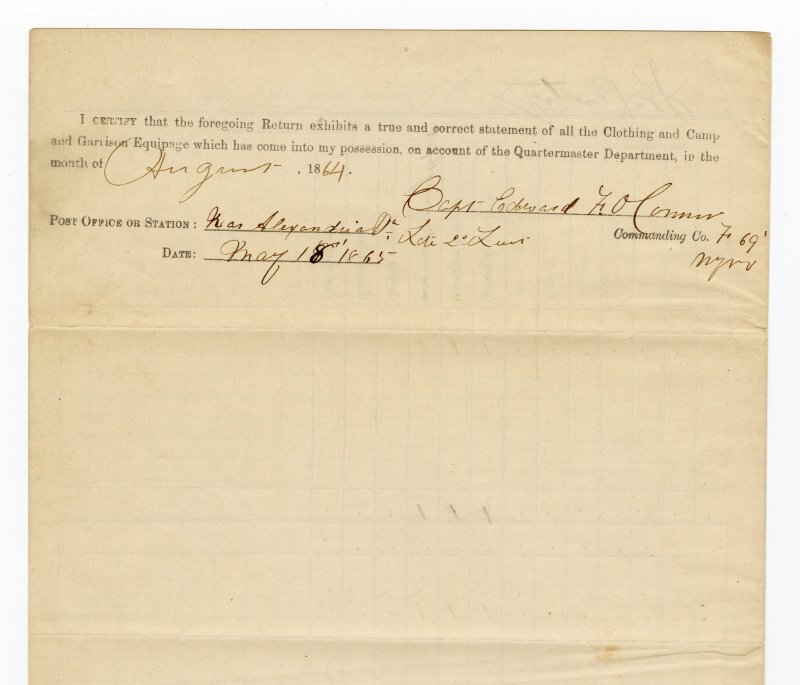 I CERTIFY that the foregoing Return exhibits a true and correct statement of all the Clothing and Camp
and Garrison Equipage which has come into my possession, on account of the Quartermaster Department, in the
month of August, 1864.
Capt Edward F. O Connor
POST OFFICE OR STATION: Near Alexandria Va Late 2d Lieut
Commanding Co. F 69
DATE: May 18 1865 NYVV